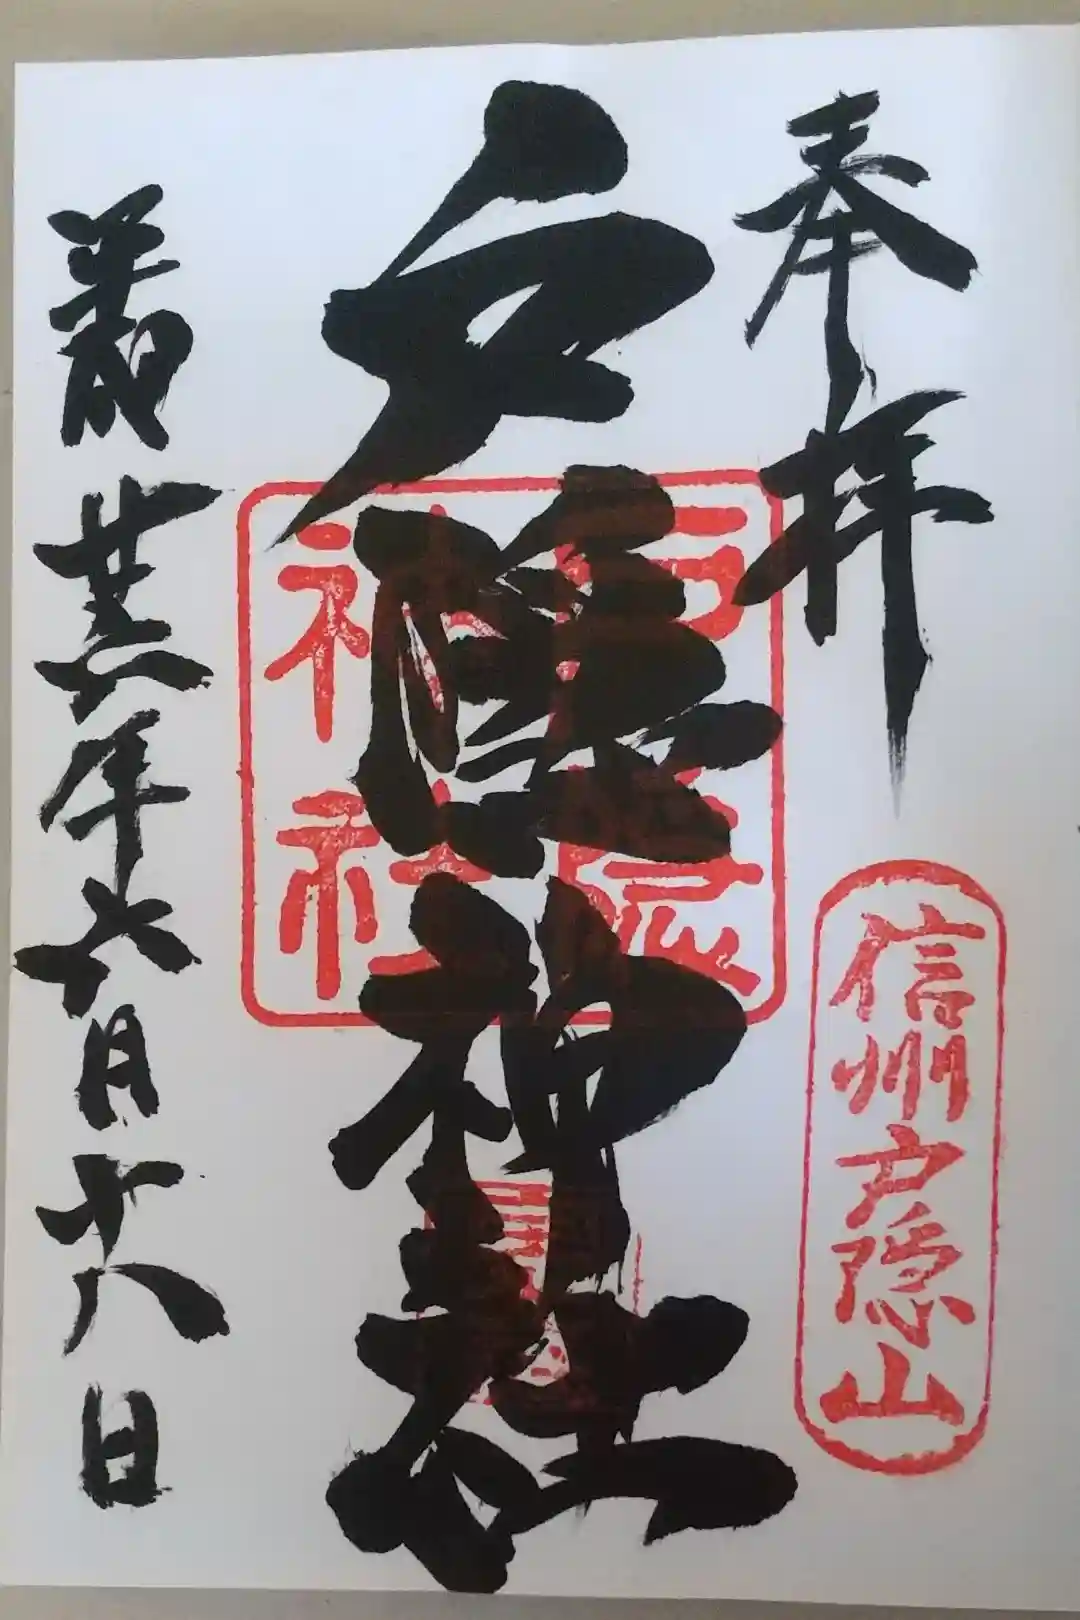 奉拝
信州戸隠山
戸隠神社
戸隠
神社
年六月十八日